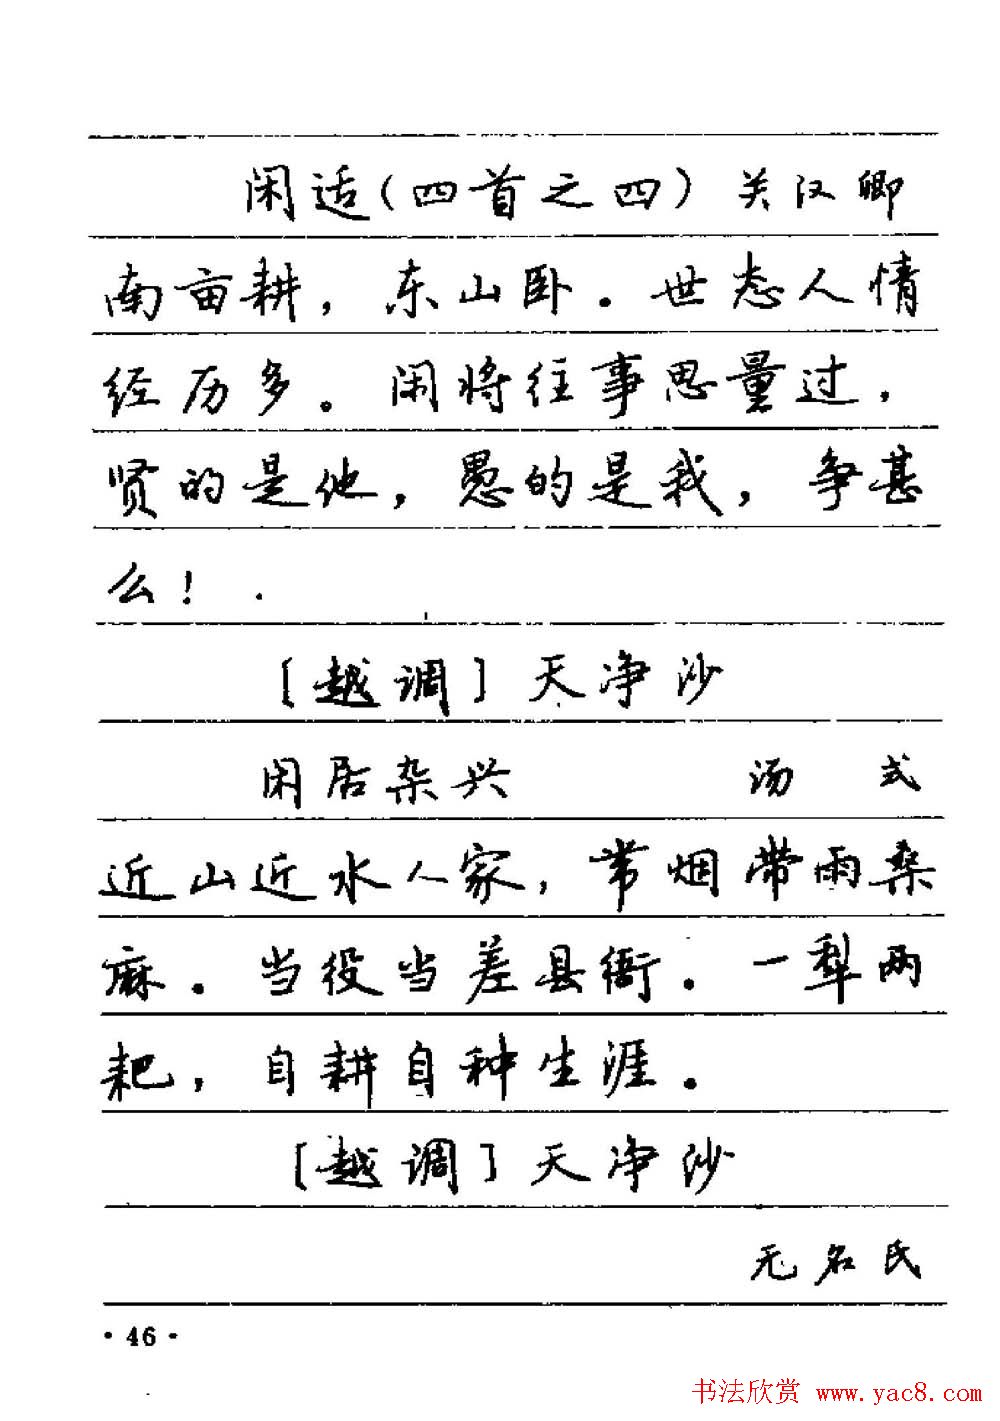 闲适(四首之四) 关汉卿
南亩耕，东山卧。世态人情
经历多。闲将往事思量过，
贤的是他，愚的是我，争甚
么！
[越调] 天净沙
闲居杂兴 汤 式
近山近水人家，带烟带雨桑
麻。当役当差县衙。一犁两
耙，自耕自种生涯。
[越调] 天净沙
无名氏
·46·
书法欣赏 www.yac8.com